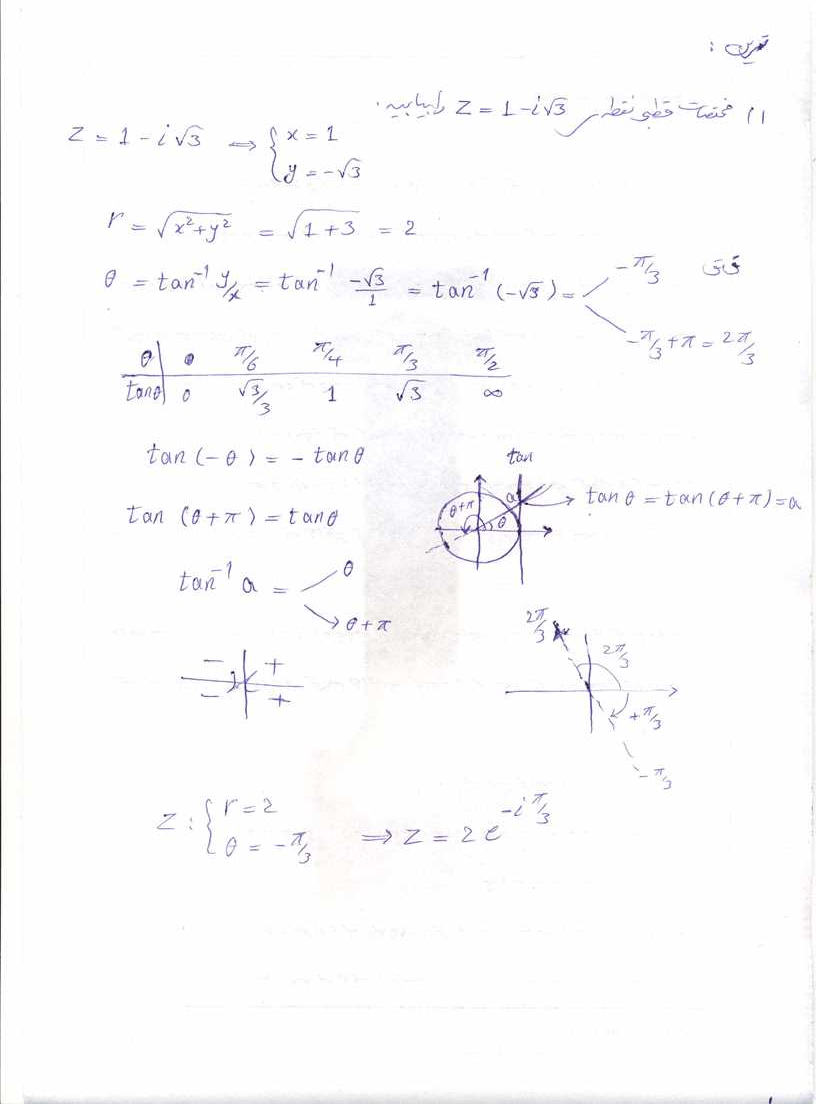 تمرین :
۱) مختصات قطبی نقطه z = 1-i√3 را بیابید.
z = 1 - i√3 ⟹ { x = 1
y = -√3
r = √(x²+y²) = √(1+3) = 2
θ = tan⁻¹ y/x = tan⁻¹ -√3/1 = tan⁻¹ (-√3) = -π/3 ق ق
-π/3 + π = 2π/3
θ 0 π/6 π/4 π/3 π/2
tanθ 0 √3/3 1 √3 ∞
tan (-θ) = - tan θ
tan
a
θ+π θ
tan θ = tan (θ+π) = a
tan (θ+π) = tan θ
tan⁻¹ a = θ
θ+π
- +
- +
2π/3
2π/3
+π/3
-π/3
z : { r = 2
θ = -π/3 ⟹ z = 2 e^(-i π/3)